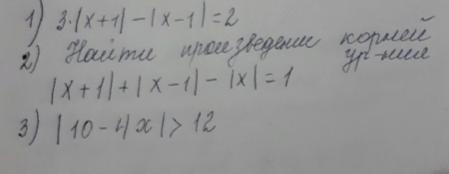 1) 3·|x+1|-|x-1|=2
2) Найти произведение корней
ур-ния
|x+1|+|x-1|-|x|=1
3) |10-4|x|>12